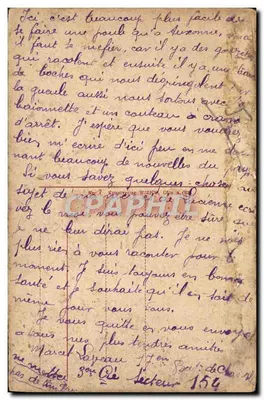 Ici c'est beaucoup plus facile de
se faire une poule qu'a Auxonne, mais
il faut se mefier, car il y a des gonzes
qui racolent et ensuite il y a une bande
de boches qui nous degringolent
la gueule aussi nous sortons avec
baionnette et un couteau a crans
d'arrêt. J'espère que vous voudrez
bien m'ecrire d'ici peu en me don
nant beaucoup de nouvelles du
Si vous savez quelques choses
sujet de
vez le moi vous pouvez être sûre
je ne leur dirai pas. Je ne vois
plus rien à vous raconter pour le
moment. Je suis toujours en bonne
santé et je souhaite qu'il en soit de
même pour vous tous.
Je vous quitte en vous envoyant
à tous mes plus tendres amitiés
Marcel
3em Cie Secteur 154
CPAPHIL